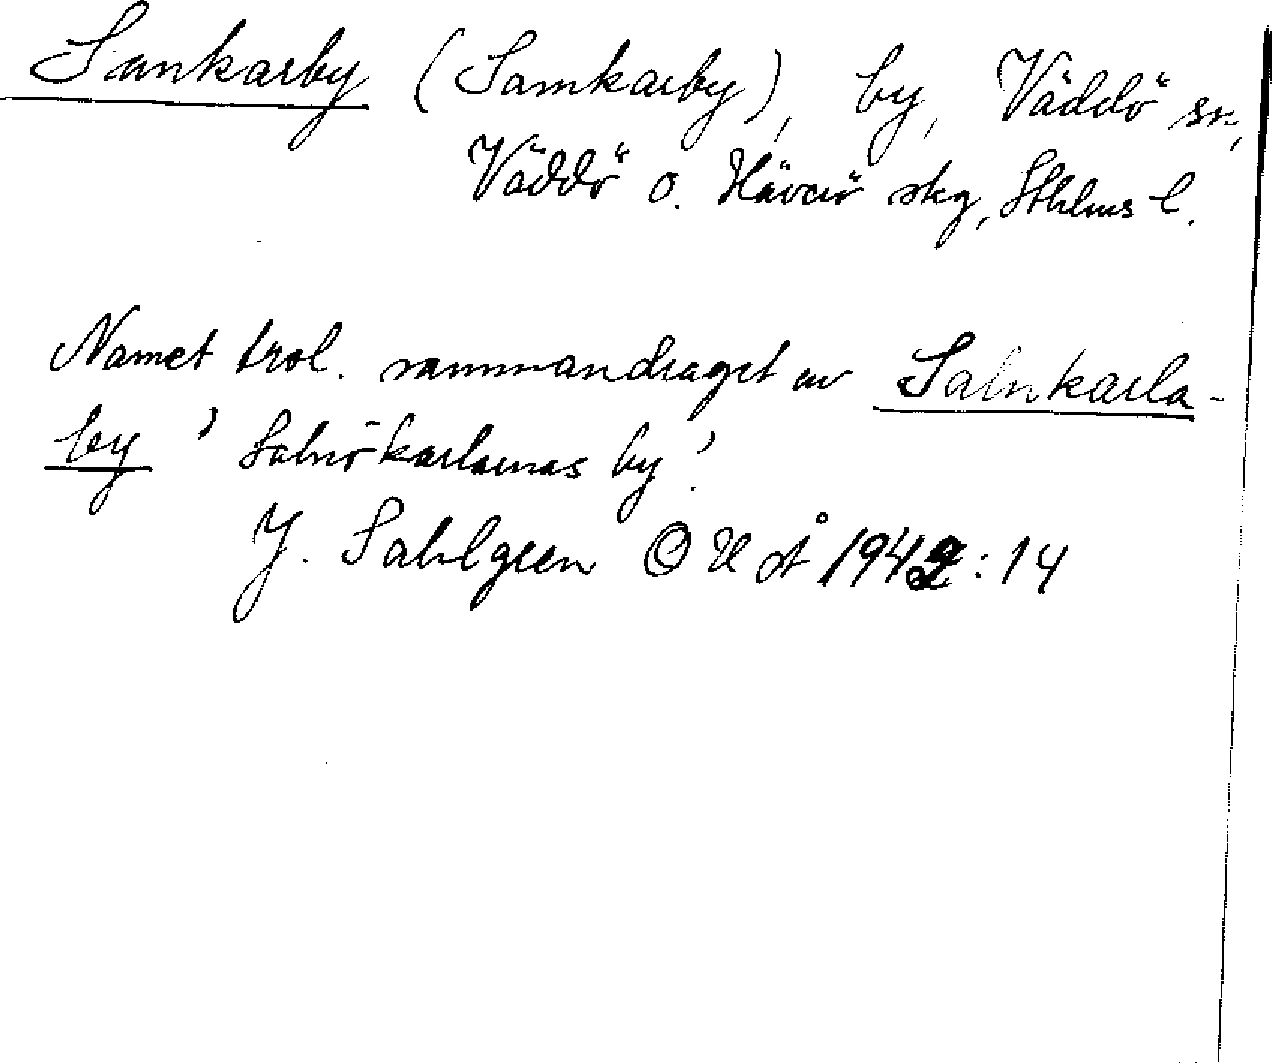 Sankarby (Samkarby), by, Väddö sn,
Väddö o. Häverö skg, Sthlms l.
Namet trol. sammandraget av Salnkarla-
by 'Salnökarlarnas by'.
J. Sahlgren OUÅ 1942:14